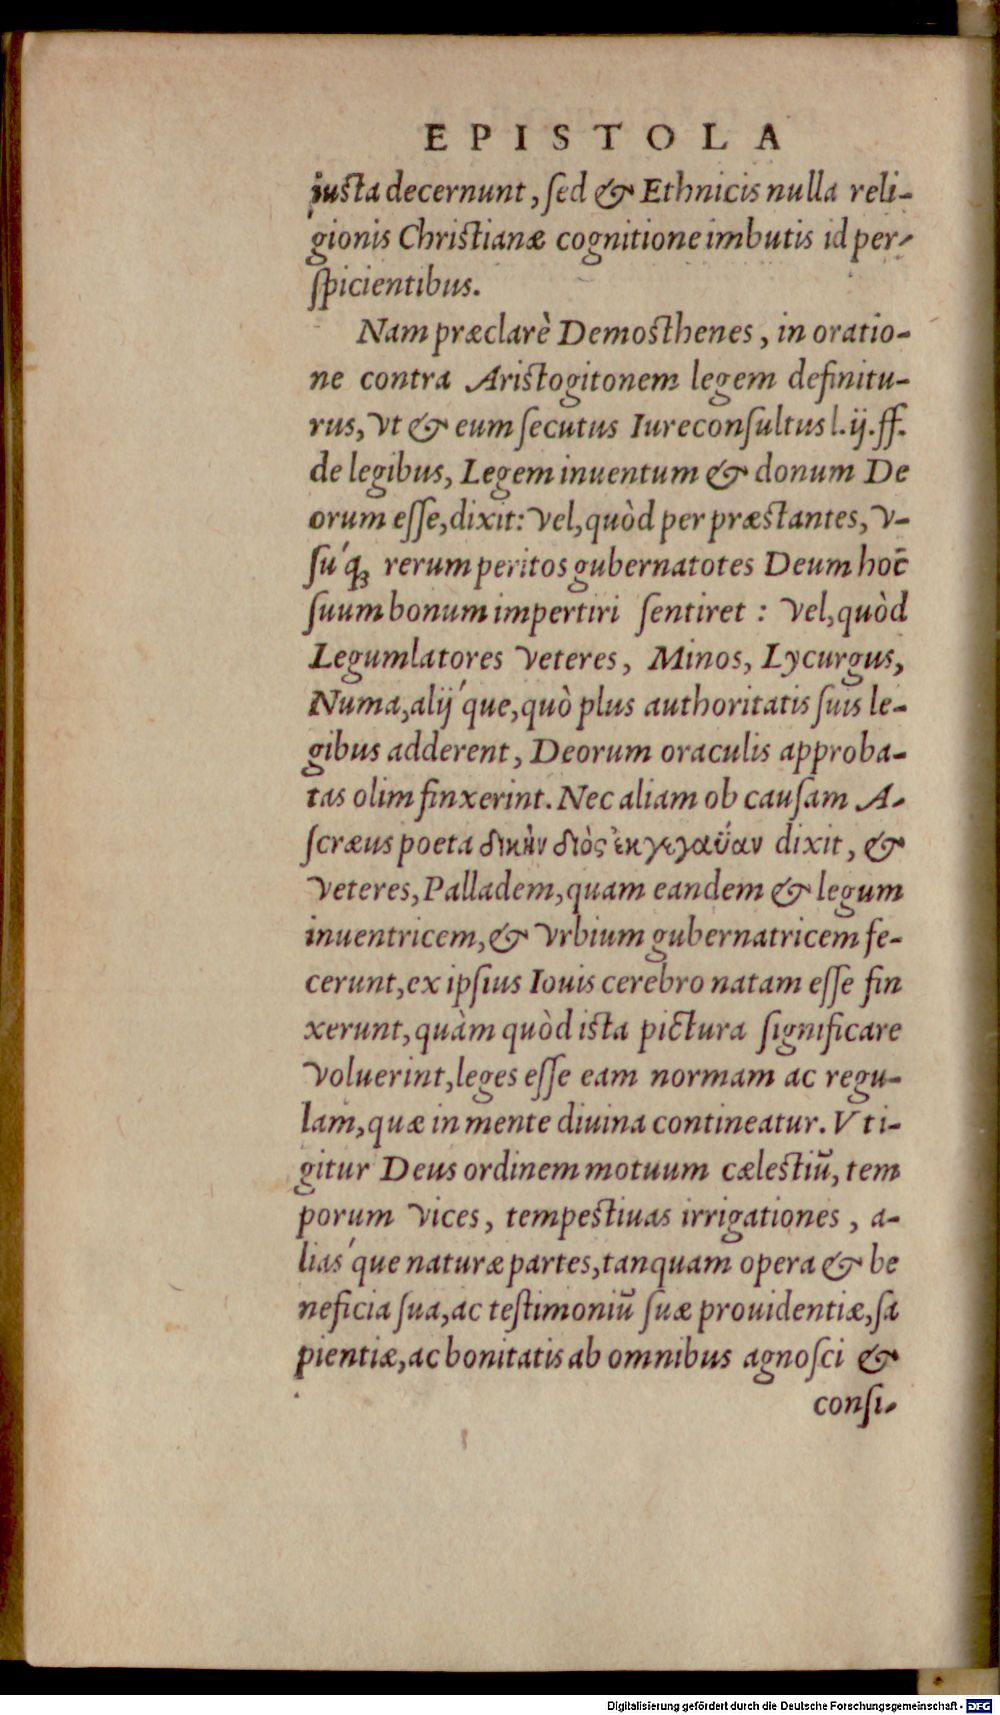 EPISTOLA
iusta decernunt, sed & Ethnicis nulla reli-
gionis Christianæ cognitione imbutis id per-
spicientibus.
Nam præclarè Demosthenes, in oratio-
ne contra Aristogitonem legem definitu-
rus, vt & eum secutus Iureconsultus l. ij. ff.
de legibus, Legem inuentum & donum De
orum esse, dixit: vel, quòd per præstantes, v-
sú'q; rerum peritos gubernatotes Deum hoc̄
suum bonum impertiri sentiret : vel, quòd
Legumlatores veteres, Minos, Lycurgus,
Numa, alij'que, quò plus authoritatis suis le-
gibus adderent, Deorum oraculis approba-
tas olim finxerint. Nec aliam ob causam A-
scræus poeta δικὴν διὸς ἐκγεγαῦαν dixit, &
veteres, Palladem, quam eandem & legum
inuentricem, & vrbium gubernatricem fe-
cerunt, ex ipsius Iouis cerebro natam esse fin
xerunt, quàm quòd ista pictura significare
voluerint, leges esse eam normam ac regu-
lam, quæ in mente diuina contineatur. Vt i-
gitur Deus ordinem motuum cælestiũ, tem
porum vices, tempestiuas irrigationes, a-
lias'que naturæ partes, tanquam opera & be
neficia sua, ac testimoniũ suæ prouidentiæ, sa
pientiæ, ac bonitatis ab omnibus agnosci &
consi-
Digitalisierung gefördert durch die Deutsche Forschungsgemeinschaft - DFG